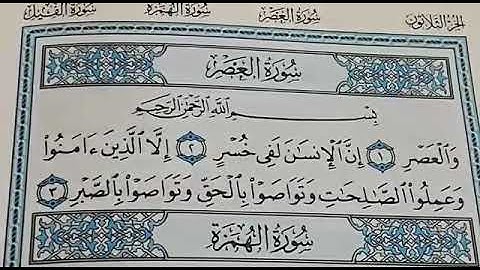 الجزء الثلاثون سُورَةُ العَصْرِ سُورَةُ الهُمَزَة سُورَةُ الفِيل
سُورَةُ العَصْرِ
بِسْمِ ٱللَّهِ ٱلرَّحْمَٰنِ ٱلرَّحِيمِ
وَٱلْعَصْرِ ١ إِنَّ ٱلْإِنسَٰنَ لَفِى خُسْرٍ ٢ إِلَّا ٱلَّذِينَ ءَامَنُوا۟
وَعَمِلُوا۟ ٱلصَّٰلِحَٰتِ وَتَوَاصَوْا۟ بِٱلْحَقِّ وَتَوَاصَوْا۟ بِٱلصَّبْرِ ٣
سُورَةُ الهُمَزَةِ